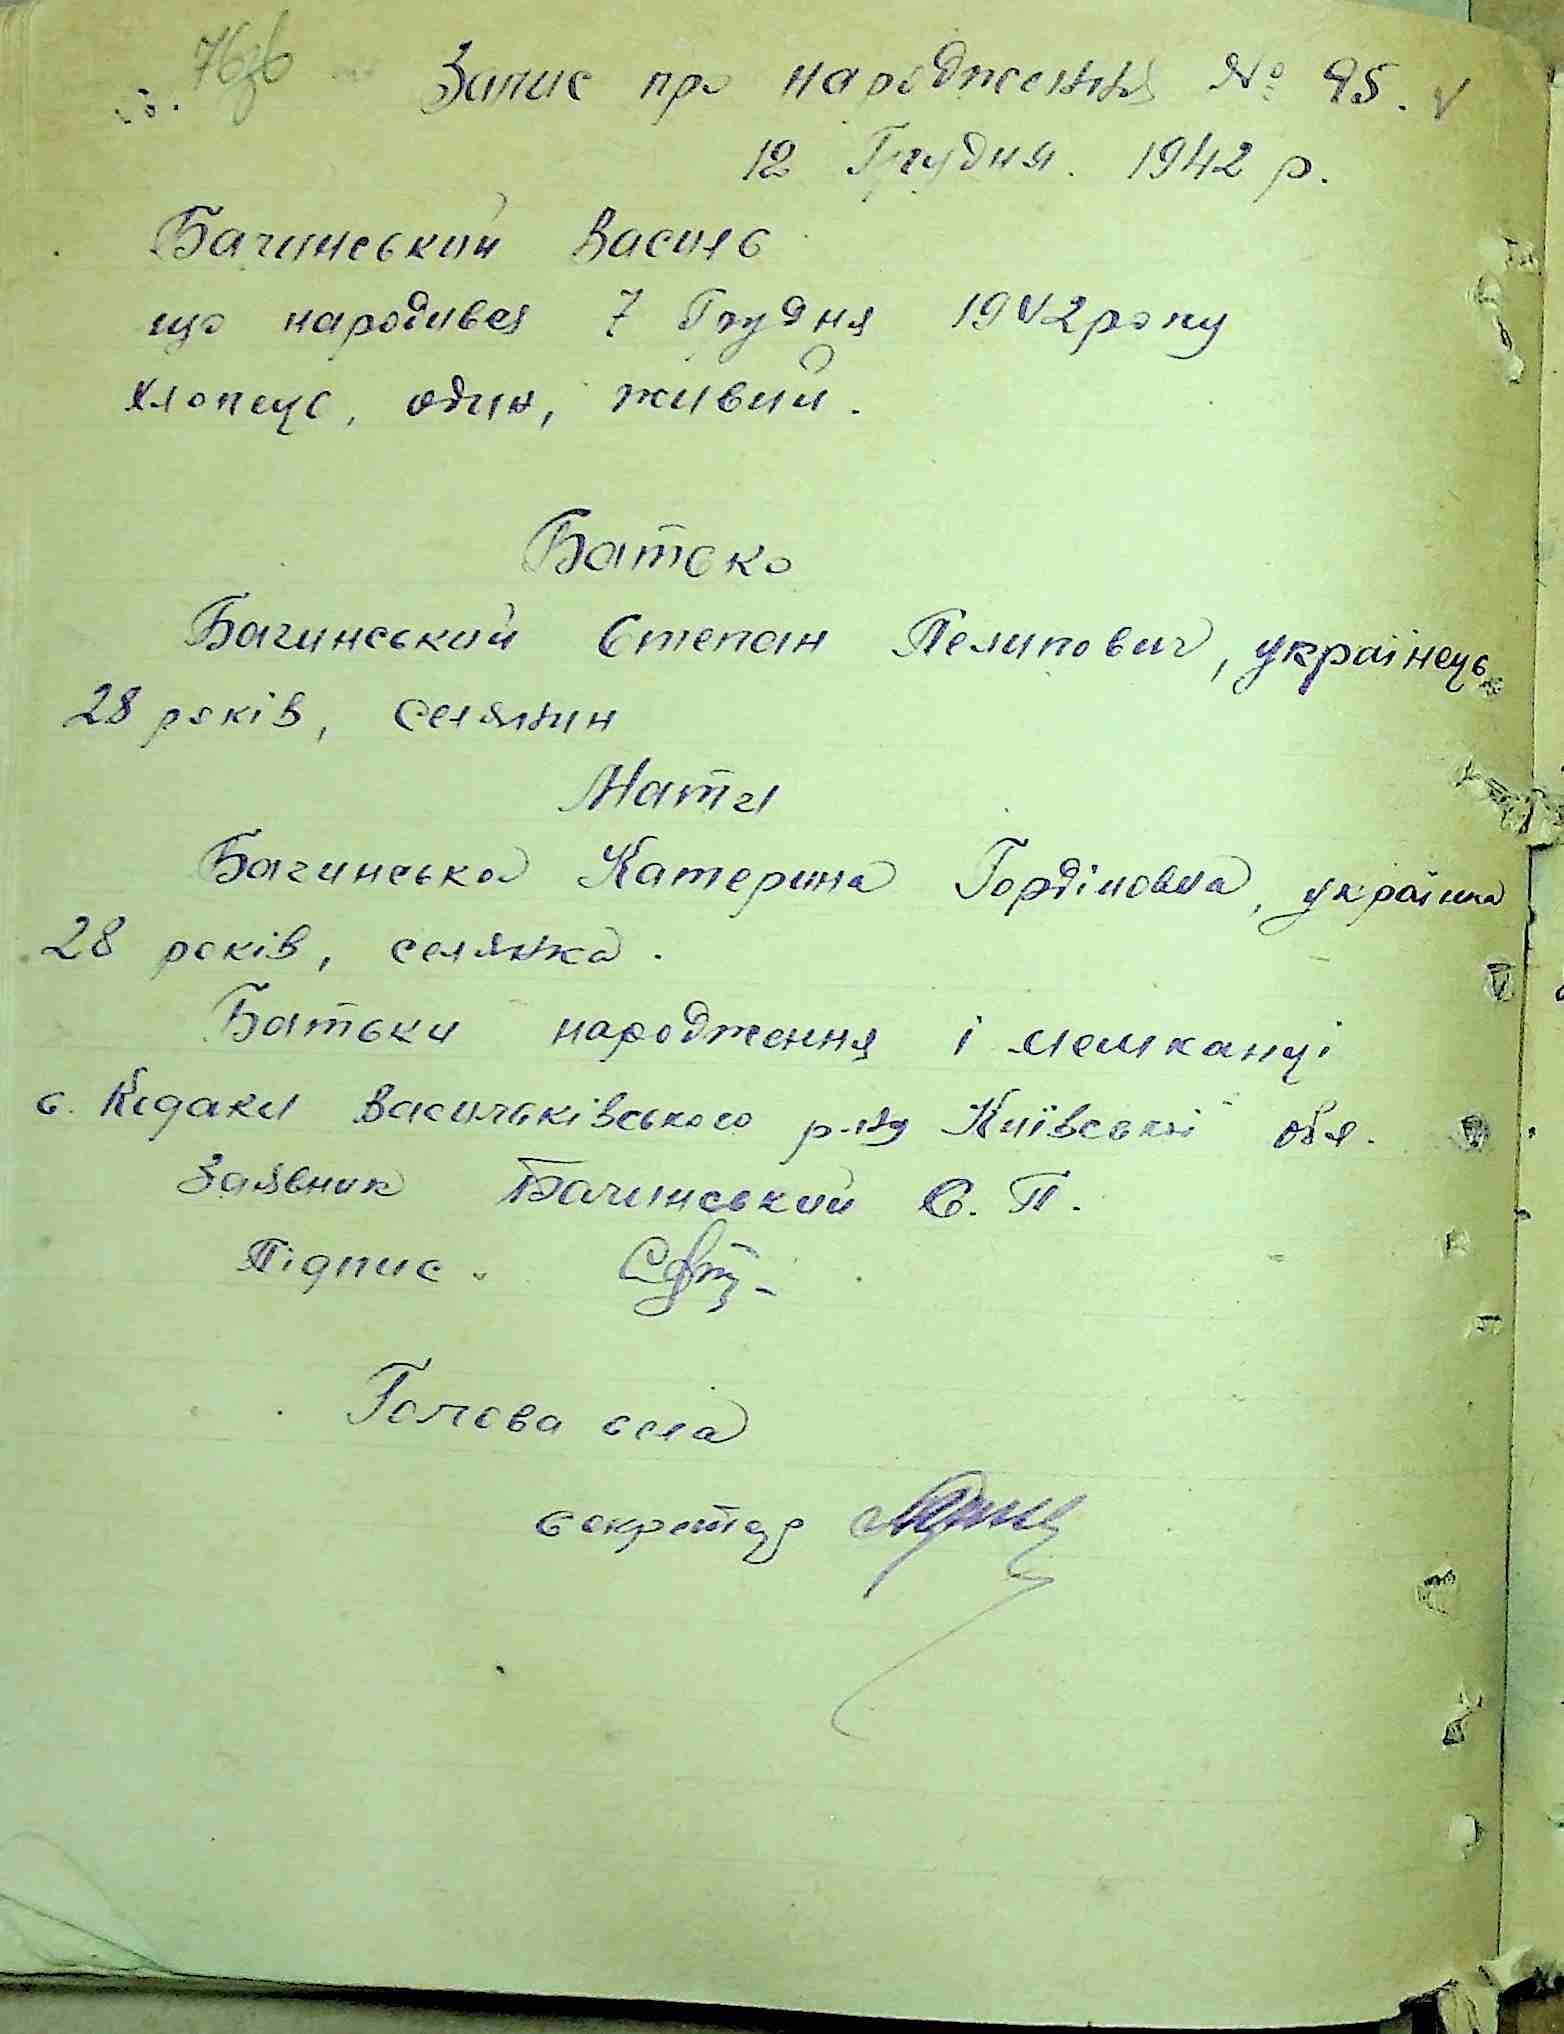 Запис про народження № 95.
12 Грудня. 1942 р.
Бачинський Василь
що народився 7 Грудня 1942 року
хлопець, один, живий.
Батько
Бачинський Степан Пелипович, українець
28 років, селянин
Мати
Бачинська Катерина Гордіновна, українка
28 років, селянка.
Батьки народження і мешканці
с. Кодаки Васильківського р-ну Київської обл.
Заявник Бачинський С. П.
Підпис.
Голова села
секретар